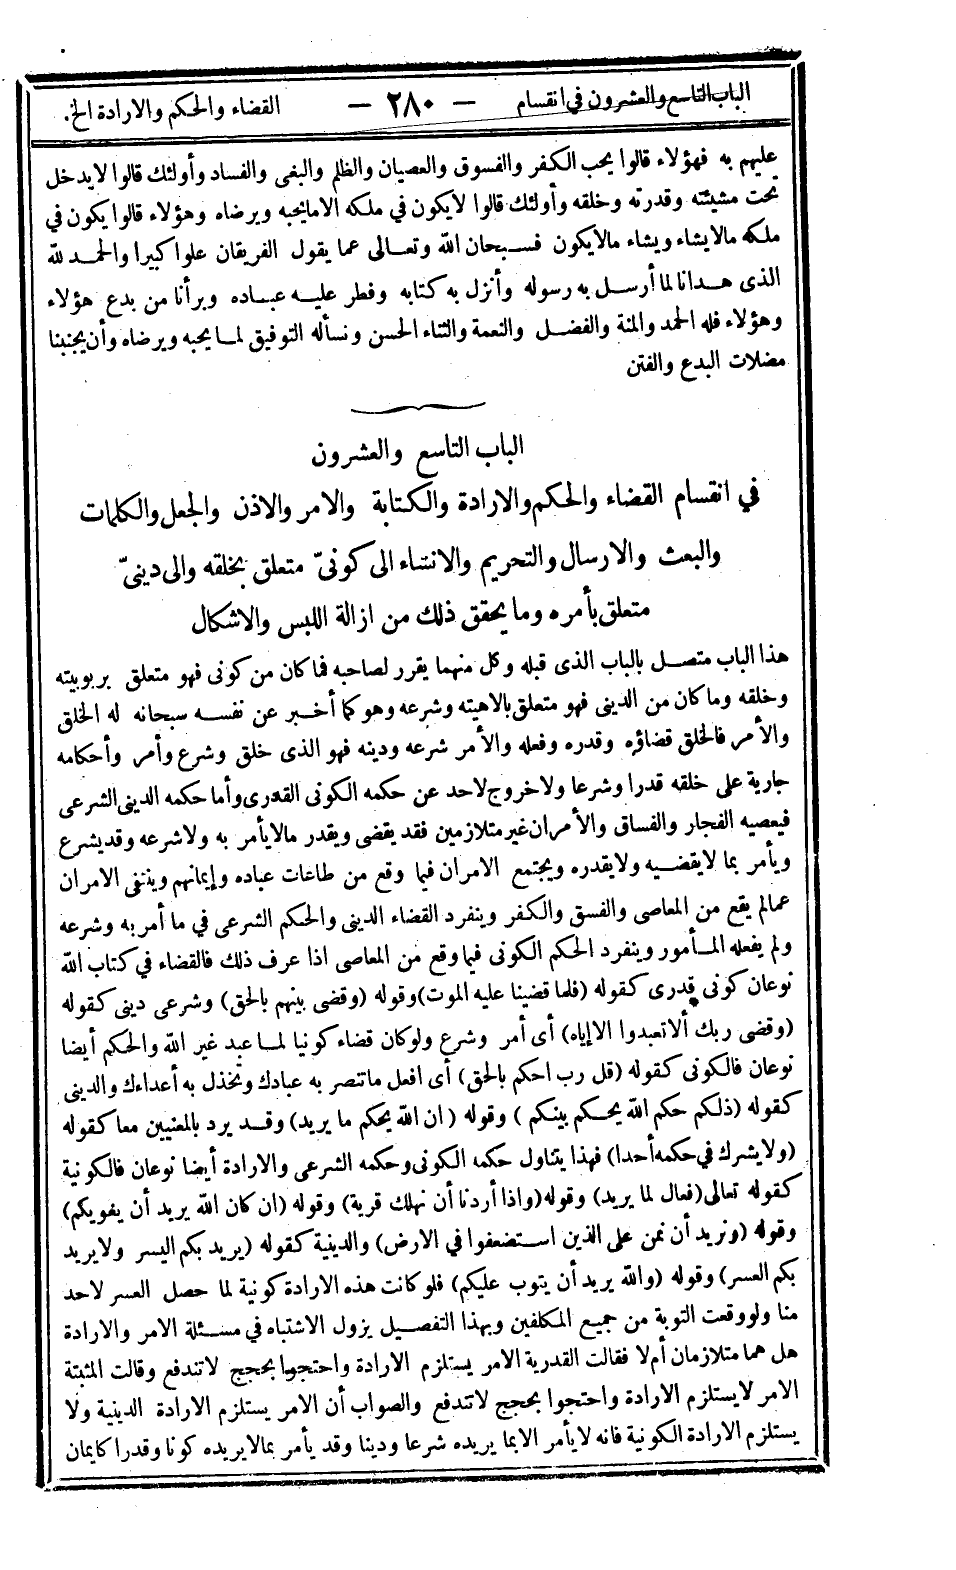 الباب التاسع والعشرون في انقسام — ٢٨٠ — القضاء والحكم والارادة الخ.
عليهم به فهؤلاء قالوا يحب الكفر والفسوق والعصيان والظلم والبغى والفساد وأولئك قالوا لايدخل
تحت مشيئته وقدرته وخلقه وأولئك قالوا لايكون في ملكه الامايحبه ويرضاه وهؤلاء قالوا يكون في
ملكه مالايشاء ويشاء مالايكون فسبحان الله وتعالى عما يقول الفريقان علوا كبيرا والحمد لله
الذى هدانا لما أرسل به رسوله وأنزل به كتابه وفطر عليه عباده وبرأنا من بدع هؤلاء
وهؤلاء فله الحمد والمنة والفضل والنعمة والثناء الحسن ونسأله التوفيق لما يحبه ويرضاه وأن يجنبنا
مضلات البدع والفتن
الباب التاسع والعشرون
في انقسام القضاء والحكم والارادة والكتابة والامر والاذن والجعل والكلمات
والبعث والارسال والتحريم والانشاء الى كونىّ متعلق بخلقه والى دينىّ
متعلق بأمره وما يحقق ذلك من ازالة اللبس والاشكال
هذا الباب متصل بالباب الذى قبله وكل منهما يقرر لصاحبه فما كان من كونى فهو متعلق بربوبيته
وخلقه وماكان من الدينى فهو متعلق بالاهيته وشرعه وهو كما أخبر عن نفسه سبحانه له الخلق
والأمر فالخلق قضاؤه وقدره وفعله والأمر شرعه ودينه فهو الذى خلق وشرع وأمر وأحكامه
جارية على خلقه قدرا وشرعا ولاخروج لاحد عن حكمه الكونى القدرى وأما حكمه الدينى الشرعى
فيعصيه الفجار والفساق والأمران غير متلازمين فقد يقضى ويقدر مالايأمر به ولاشرعه وقد يشرع
ويأمر بما لايقضيه ولايقدره ويجتمع الامران فيما وقع من طاعات عباده وإيمانهم وينتفى الامران
عمالم يقع من المعاصى والفسق والكفر وينفرد القضاء الدينى والحكم الشرعى في ما أمر به وشرعه
ولم يفعله المأمور وينفرد الحكم الكونى فيما وقع من المعاصى اذا عرف ذلك فالقضاء في كتاب الله
نوعان كونى قدرى كقوله (فلما قضينا عليه الموت)وقوله (وقضى بينهم بالحق) وشرعى دينى كقوله
(وقضى ربك ألاتعبدوا الاإياه) أى أمر وشرع ولوكان قضاء كونيا لما عبد غير الله والحكم أيضا
نوعان فالكونى كقوله (قل رب احكم بالحق) أى افعل ماتنصر به عبادك وتخذل به أعداءك والدينى
كقوله (ذلكم حكم الله يحكم بينكم ) وقوله ( ان الله يحكم ما يريد) وقد يرد بالمعنيين معا كقوله
(ولايشرك في حكمه أحدا) فهذا يتناول حكمه الكونى وحكمه الشرعى والارادة أيضا نوعان فالكونية
كقوله تعالى(فعال لما يريد) وقوله(واذا أردنا أن نهلك قرية) وقوله (ان كان الله يريد أن يغويكم)
وقوله (ونريد أن نمن على الذين استضعفوا في الارض) والدينية كقوله (يريد بكم اليسر ولايريد
بكم العسر) وقوله (والله يريد أن يتوب عليكم) فلو كانت هذه الارادة كونية لما حصل العسر لاحد
منا ولووقعت التوبة من جميع المكلفين وبهذا التفصيل يزول الاشتباه في مسئلة الامر والارادة
هل هما متلازمان أم لا فقالت القدرية الامر يستلزم الارادة واحتجوا بحجج لاتندفع وقالت المثبتة
الامر لايستلزم الارادة واحتجوا بحجج لاتندفع والصواب أن الامر يستلزم الارادة الدينية ولا
يستلزم الارادة الكونية فانه لايأمر الابما يريده شرعا ودينا وقد يأمر بمالايريده كونا وقدرا كايمان